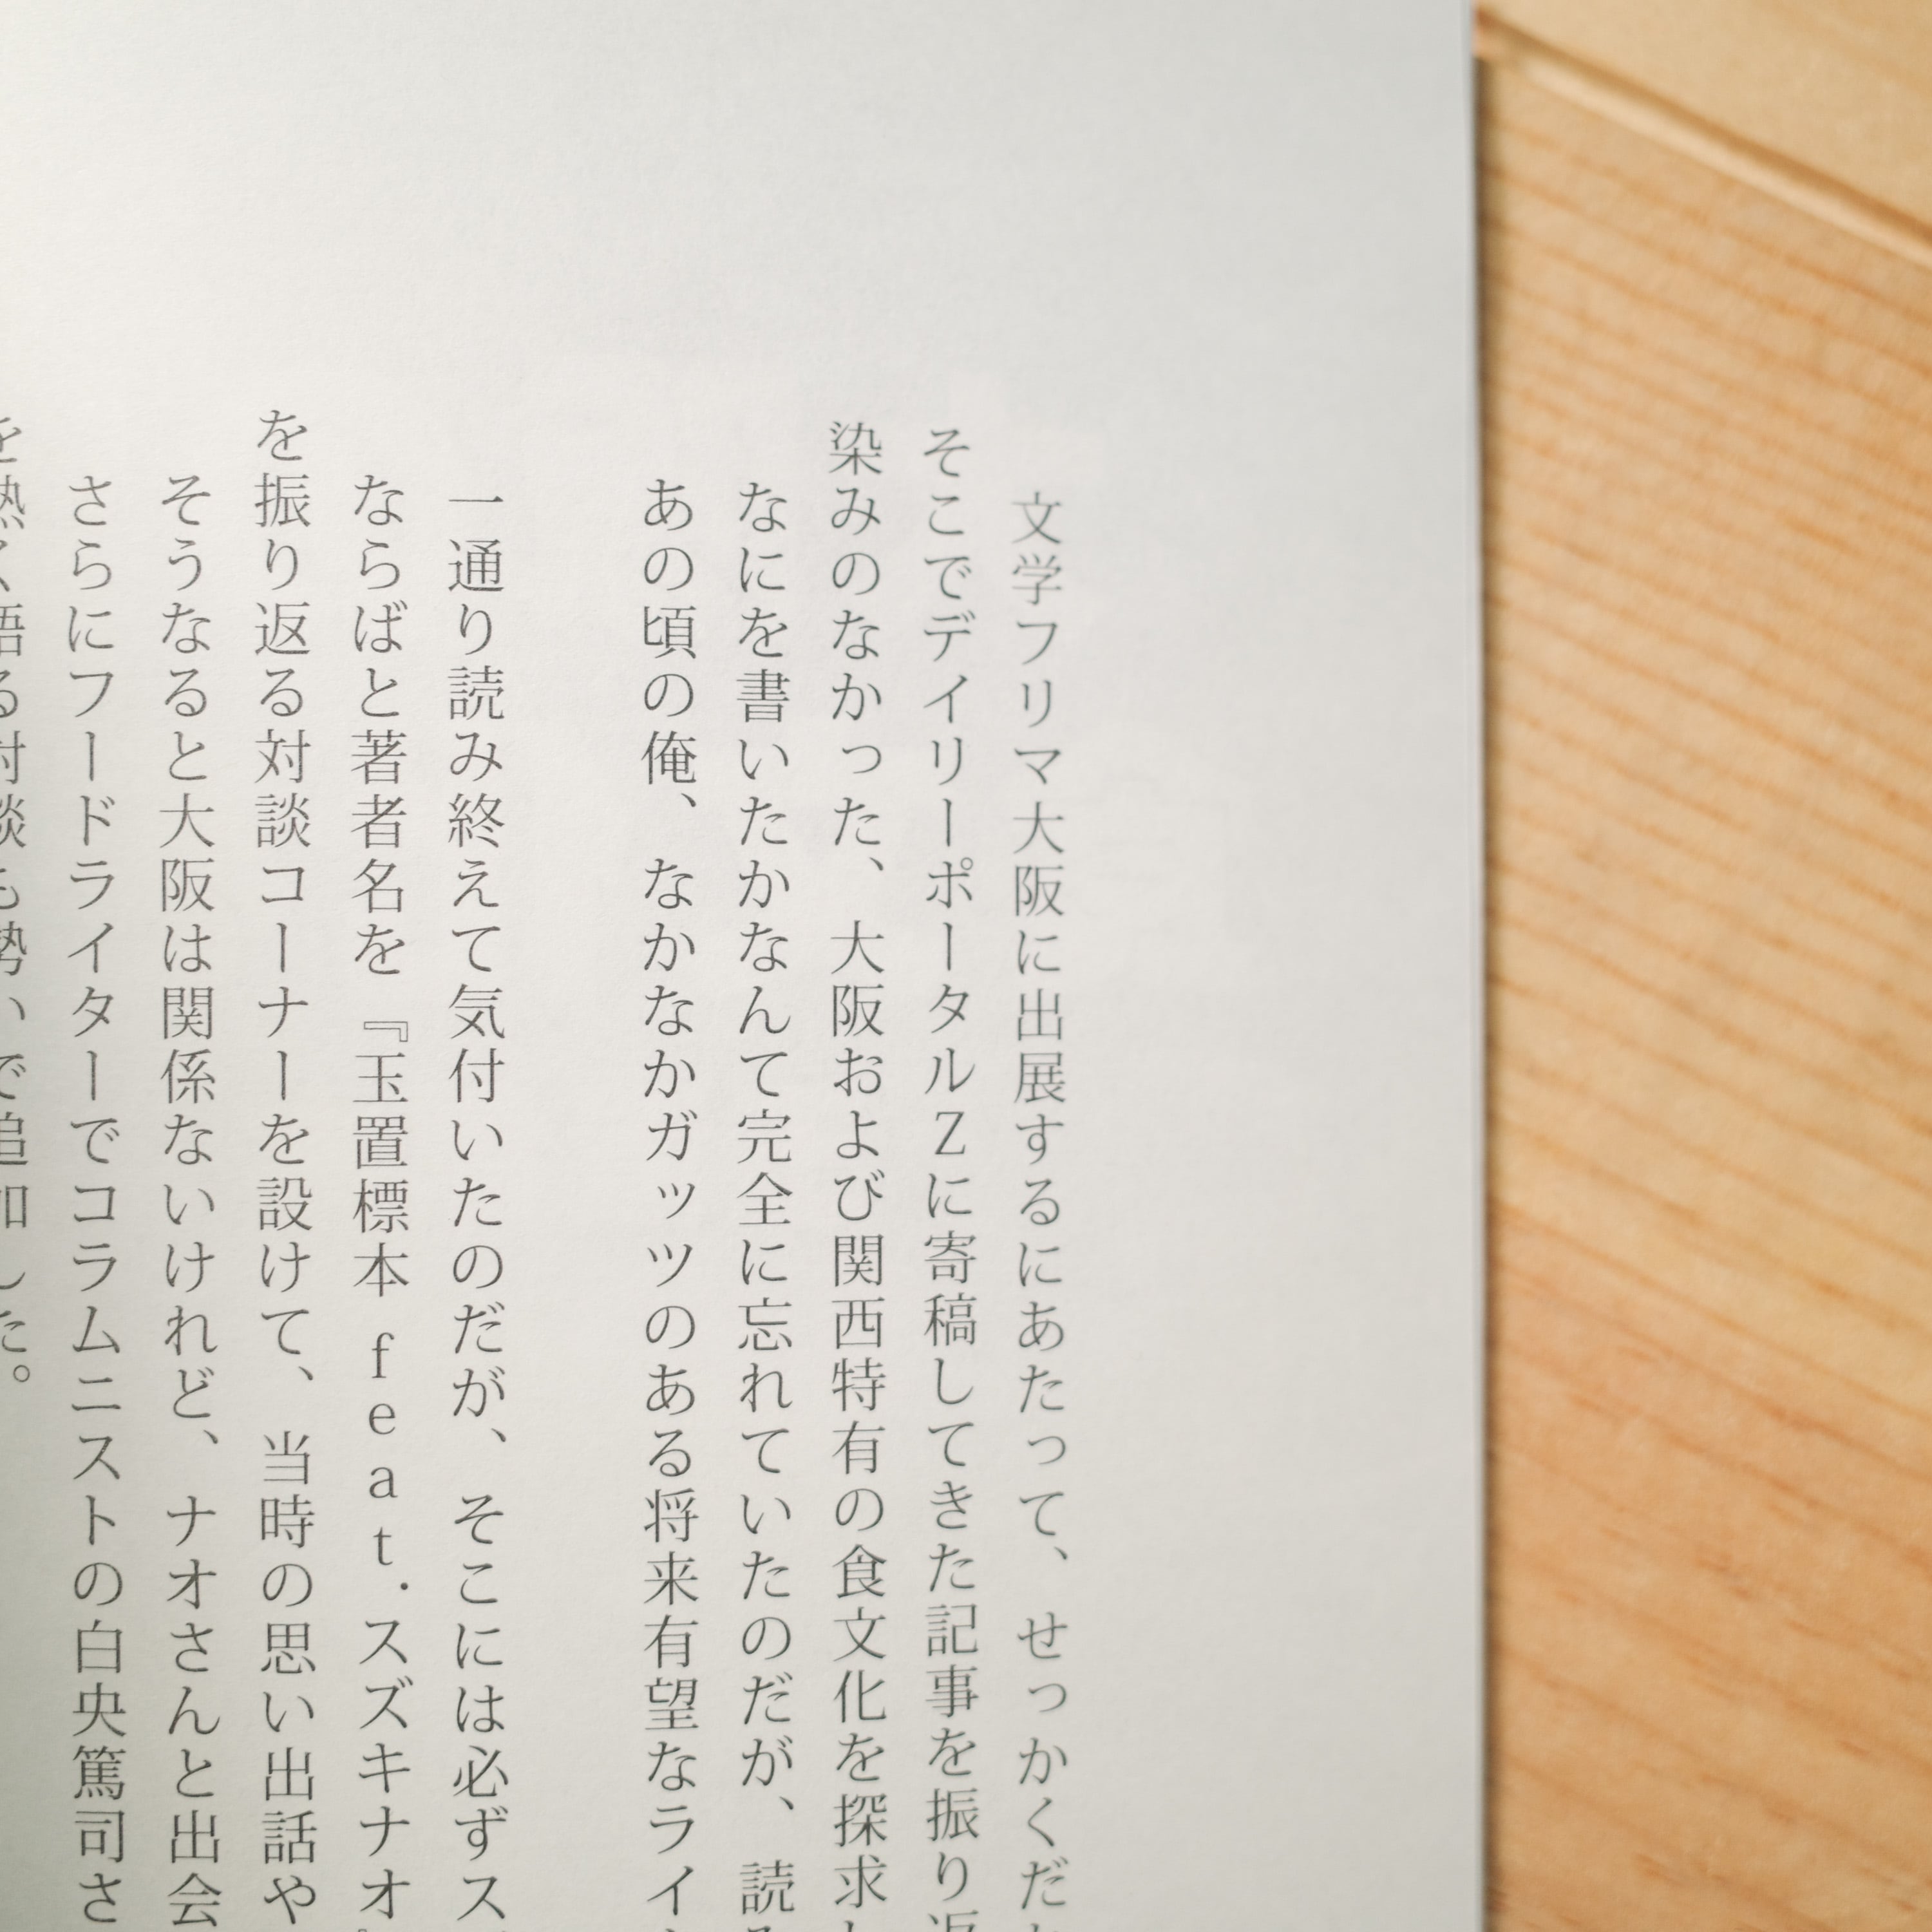 文学フリマ大阪に出展するにあたって、せっかくだ
そこでデイリーポータルZに寄稿してきた記事を振り返
染みのなかった、大阪および関西特有の食文化を探求
なにを書いたかなんて完全に忘れていたのだが、読み
あの頃の俺、なかなかガッツのある将来有望なライ
一通り読み終えて気付いたのだが、そこには必ずス
ならばと著者名を『玉置標本 feat.スズキナオ
を振り返る対談コーナーを設けて、当時の思い出話や
そうなると大阪は関係ないけれど、ナオさんと出会
さらにフードライターでコラムニストの白央篤司さ
を熱く語る対談も勢いで追加した。